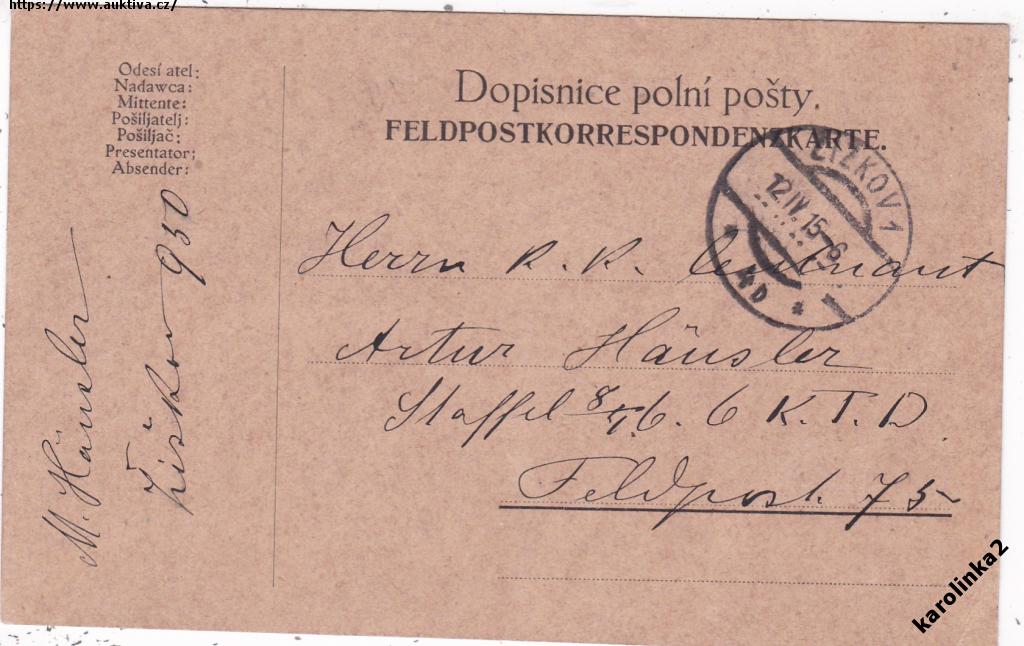 https://www.auktiva.cz/
Odesílatel:
Nadawca:
Mittente:
Pošiljatelj:
Pošiljač:
Presentator:
Absender:
M. Häusler
Žižkov 950
Dopisnice polní pošty.
FELDPOSTKORRESPONDENZKARTE.
ŽIŽKOV 1
12 IV 15 6
4D
Herrn K. K. Leutnant
Artur Häusler
Staffel 6 K.T.D.
Feldpost 75
karolinka2